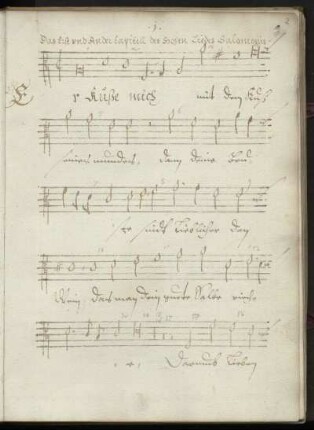 1.
Das Erst und Ander Capittell des Hohen Liedes Salomonis
Er Küße mich mit dem Kuß
seines mundes, dann deine Brü
ste sindt lieblicher den
Wein das man dein gutte Salbe rieche
Darumb lieben